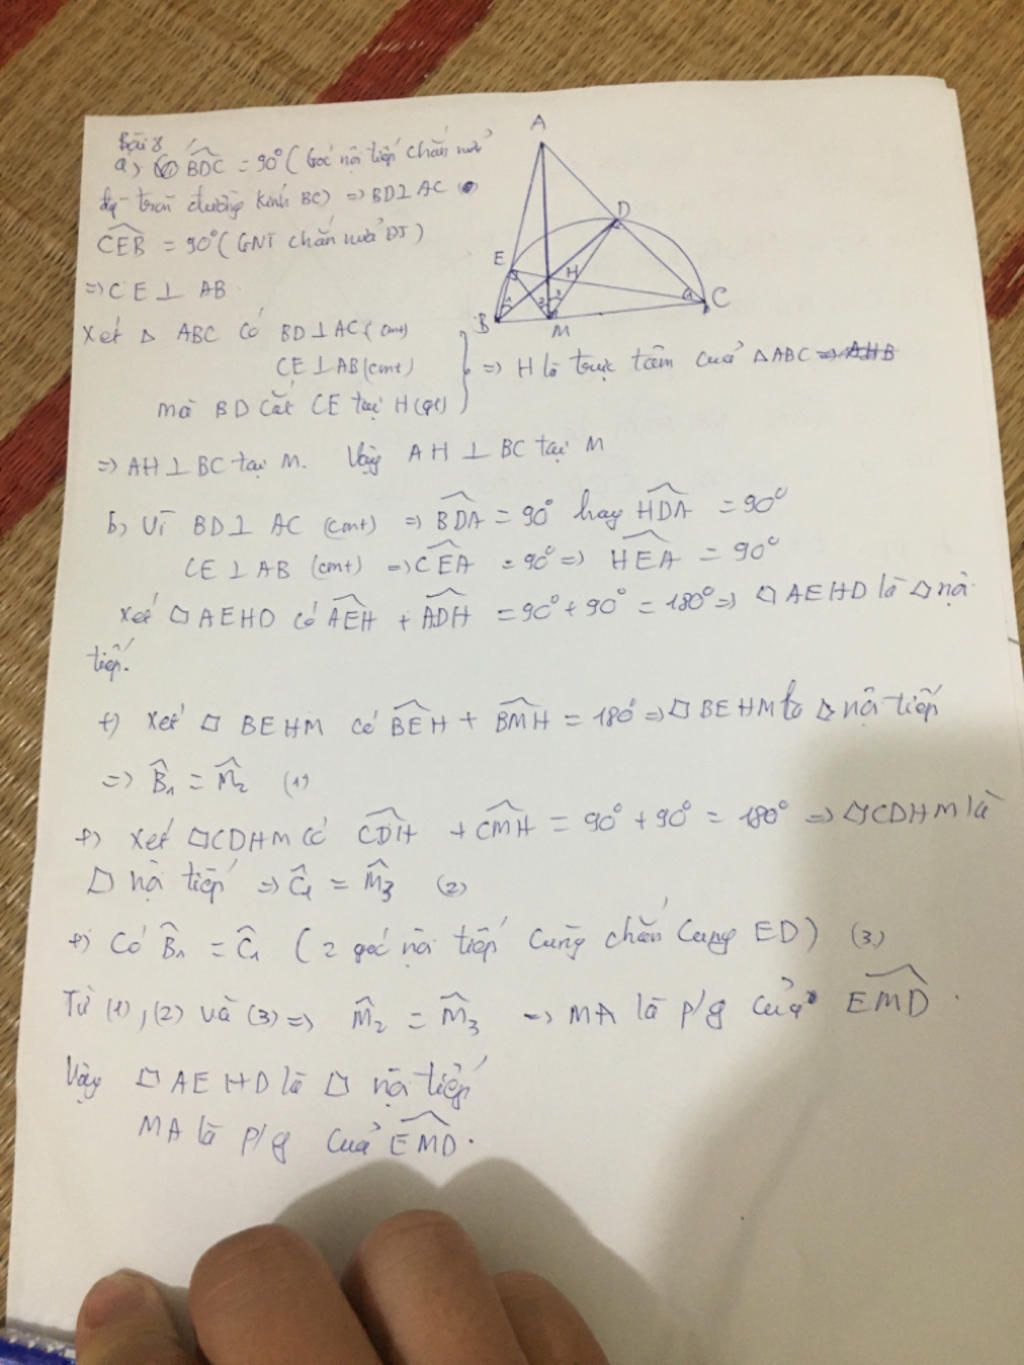 Bài 8
a) BDC = 90° (Góc nội tiếp chắn nửa
đg tròn đường kính BC) => BD⊥AC
CEB = 90° (GNT chắn nửa ĐT)
=> CE ⊥ AB
Xét △ ABC có BD⊥AC (cmt)
CE⊥AB (cmt)
mà BD cắt CE tại H (gt)
=> H là trực tâm của △ABC => AHB
=> AH⊥BC tại M. Vậy AH ⊥ BC tại M
b) Vì BD⊥ AC (cmt) => BDA = 90° hay HDA = 90°
CE⊥AB (cmt) => CEA = 90° => HEA = 90°
Xét □AEHD có AEH + ADH = 90° + 90° = 180° => □AEHD là □ nội
tiếp.
+) Xét □ BEHM có BEH + BMH = 180° => □BEHM là □ nội tiếp
=> B₁ = M₂ (1)
+) Xét □CDHM có CDH + CMH = 90° + 90° = 180° => □CDHM là
□ nội tiếp => C₁ = M₃ (2)
+) Có B₁ = C₁ (2 góc nội tiếp cùng chắn cung ED) (3)
Từ (1), (2) và (3) => M₂ = M₃ => MA là p/g của EMD.
Vậy □ AEHD là □ nội tiếp
MA là p/g của EMD.
A
D
E
H
1
2
3
1
C
B
M